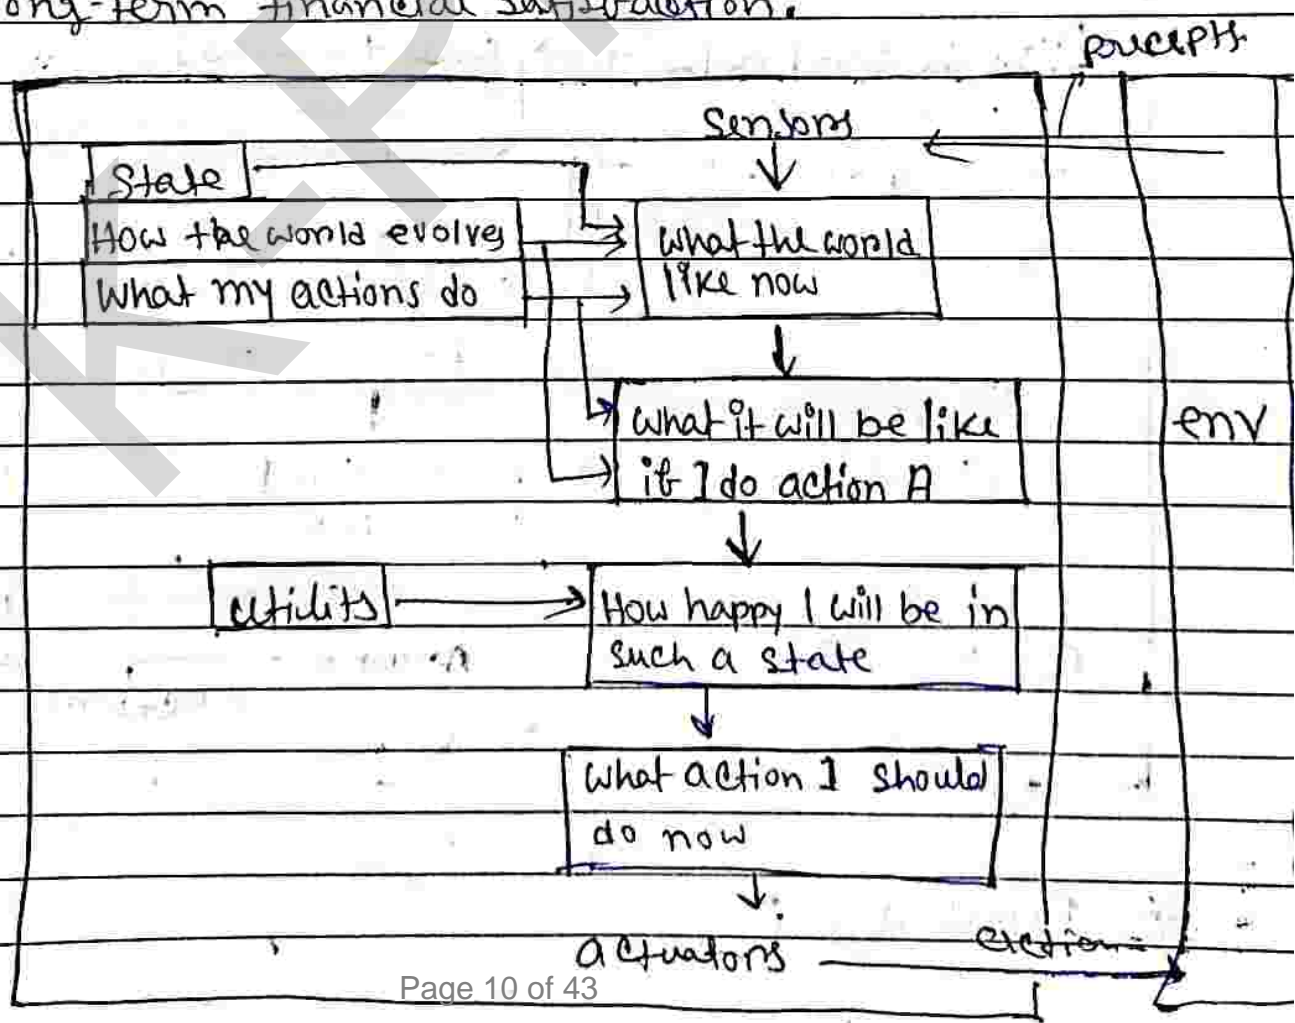 ong-term financial satisfaction.
percepts
Sensors
State
How the world evolves
What my actions do
what the world
like now
what it will be like
if I do action A
env
utility
How happy I will be in
such a state
what action I should
do now
actuators
action
Page 10 of 43